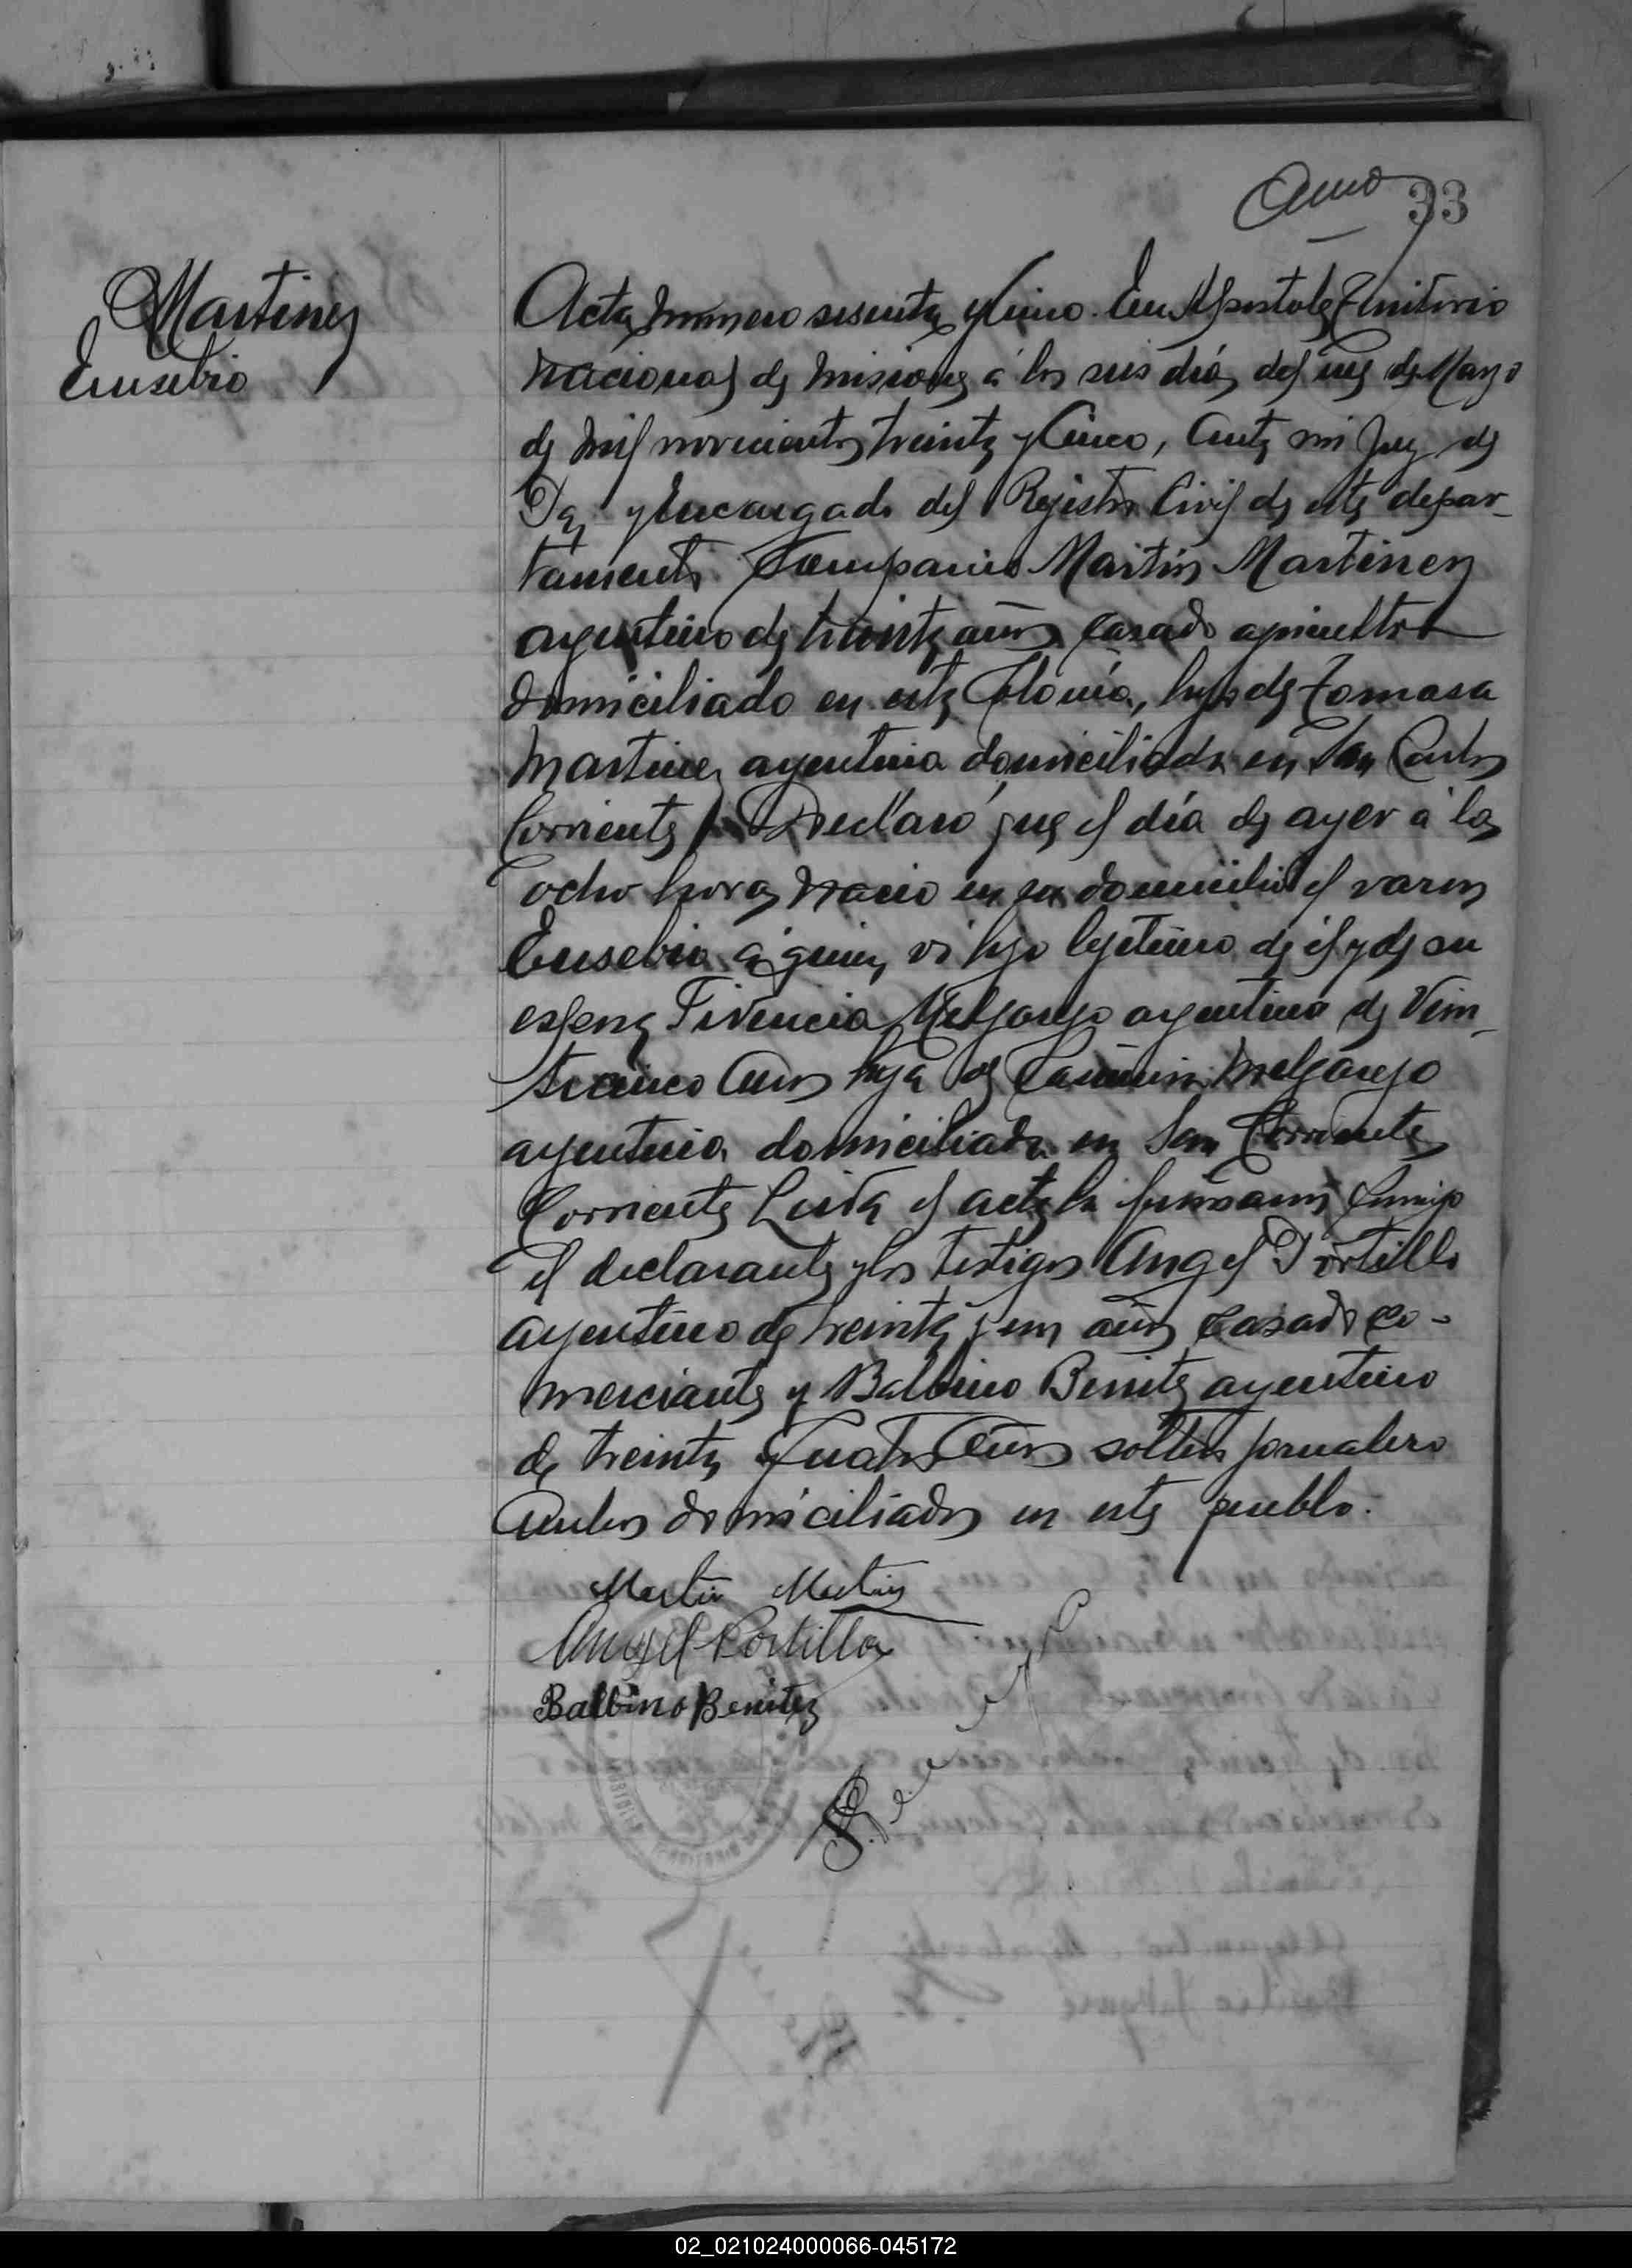 33
Martinez
Eusebio
Acta número sesenta y cinco. En Apostoles Territorio
nacional de misiones á los seis días del mes de Mayo
de mil novecientos treinta y cinco, ante mi Juez de
Paz y Encargado del Registro Civil de este depar-
tamento. Comparecio Martin Martinez
argentino de treinta años casado agricultor
domiciliado en esta Colonia, hijo de Tomasa
Martinez argentina domiciliada en San Carlos
Corrientes Declaró que el día de ayer á las
ocho horas nació en su domicilio el varon
Eusebio á quien vi hijo lejitimo de él y de su
esposa Melgarejo argentina de Vein-
ticinco años hija de Melgarejo
argentina domiciliada en San Corrientes
Corrientes Leida el acta la firmaron conmigo
el declarante y los testigos Angel Portillo
argentino de treinta y un años casado co-
merciante y Balbino Benitez argentino
de treinta y cuatro años soltero jornalero
ambos domiciliados en este pueblo.
Martin Martinez
Angel Portillo
Balbino Benitez
02_021024000066-045172